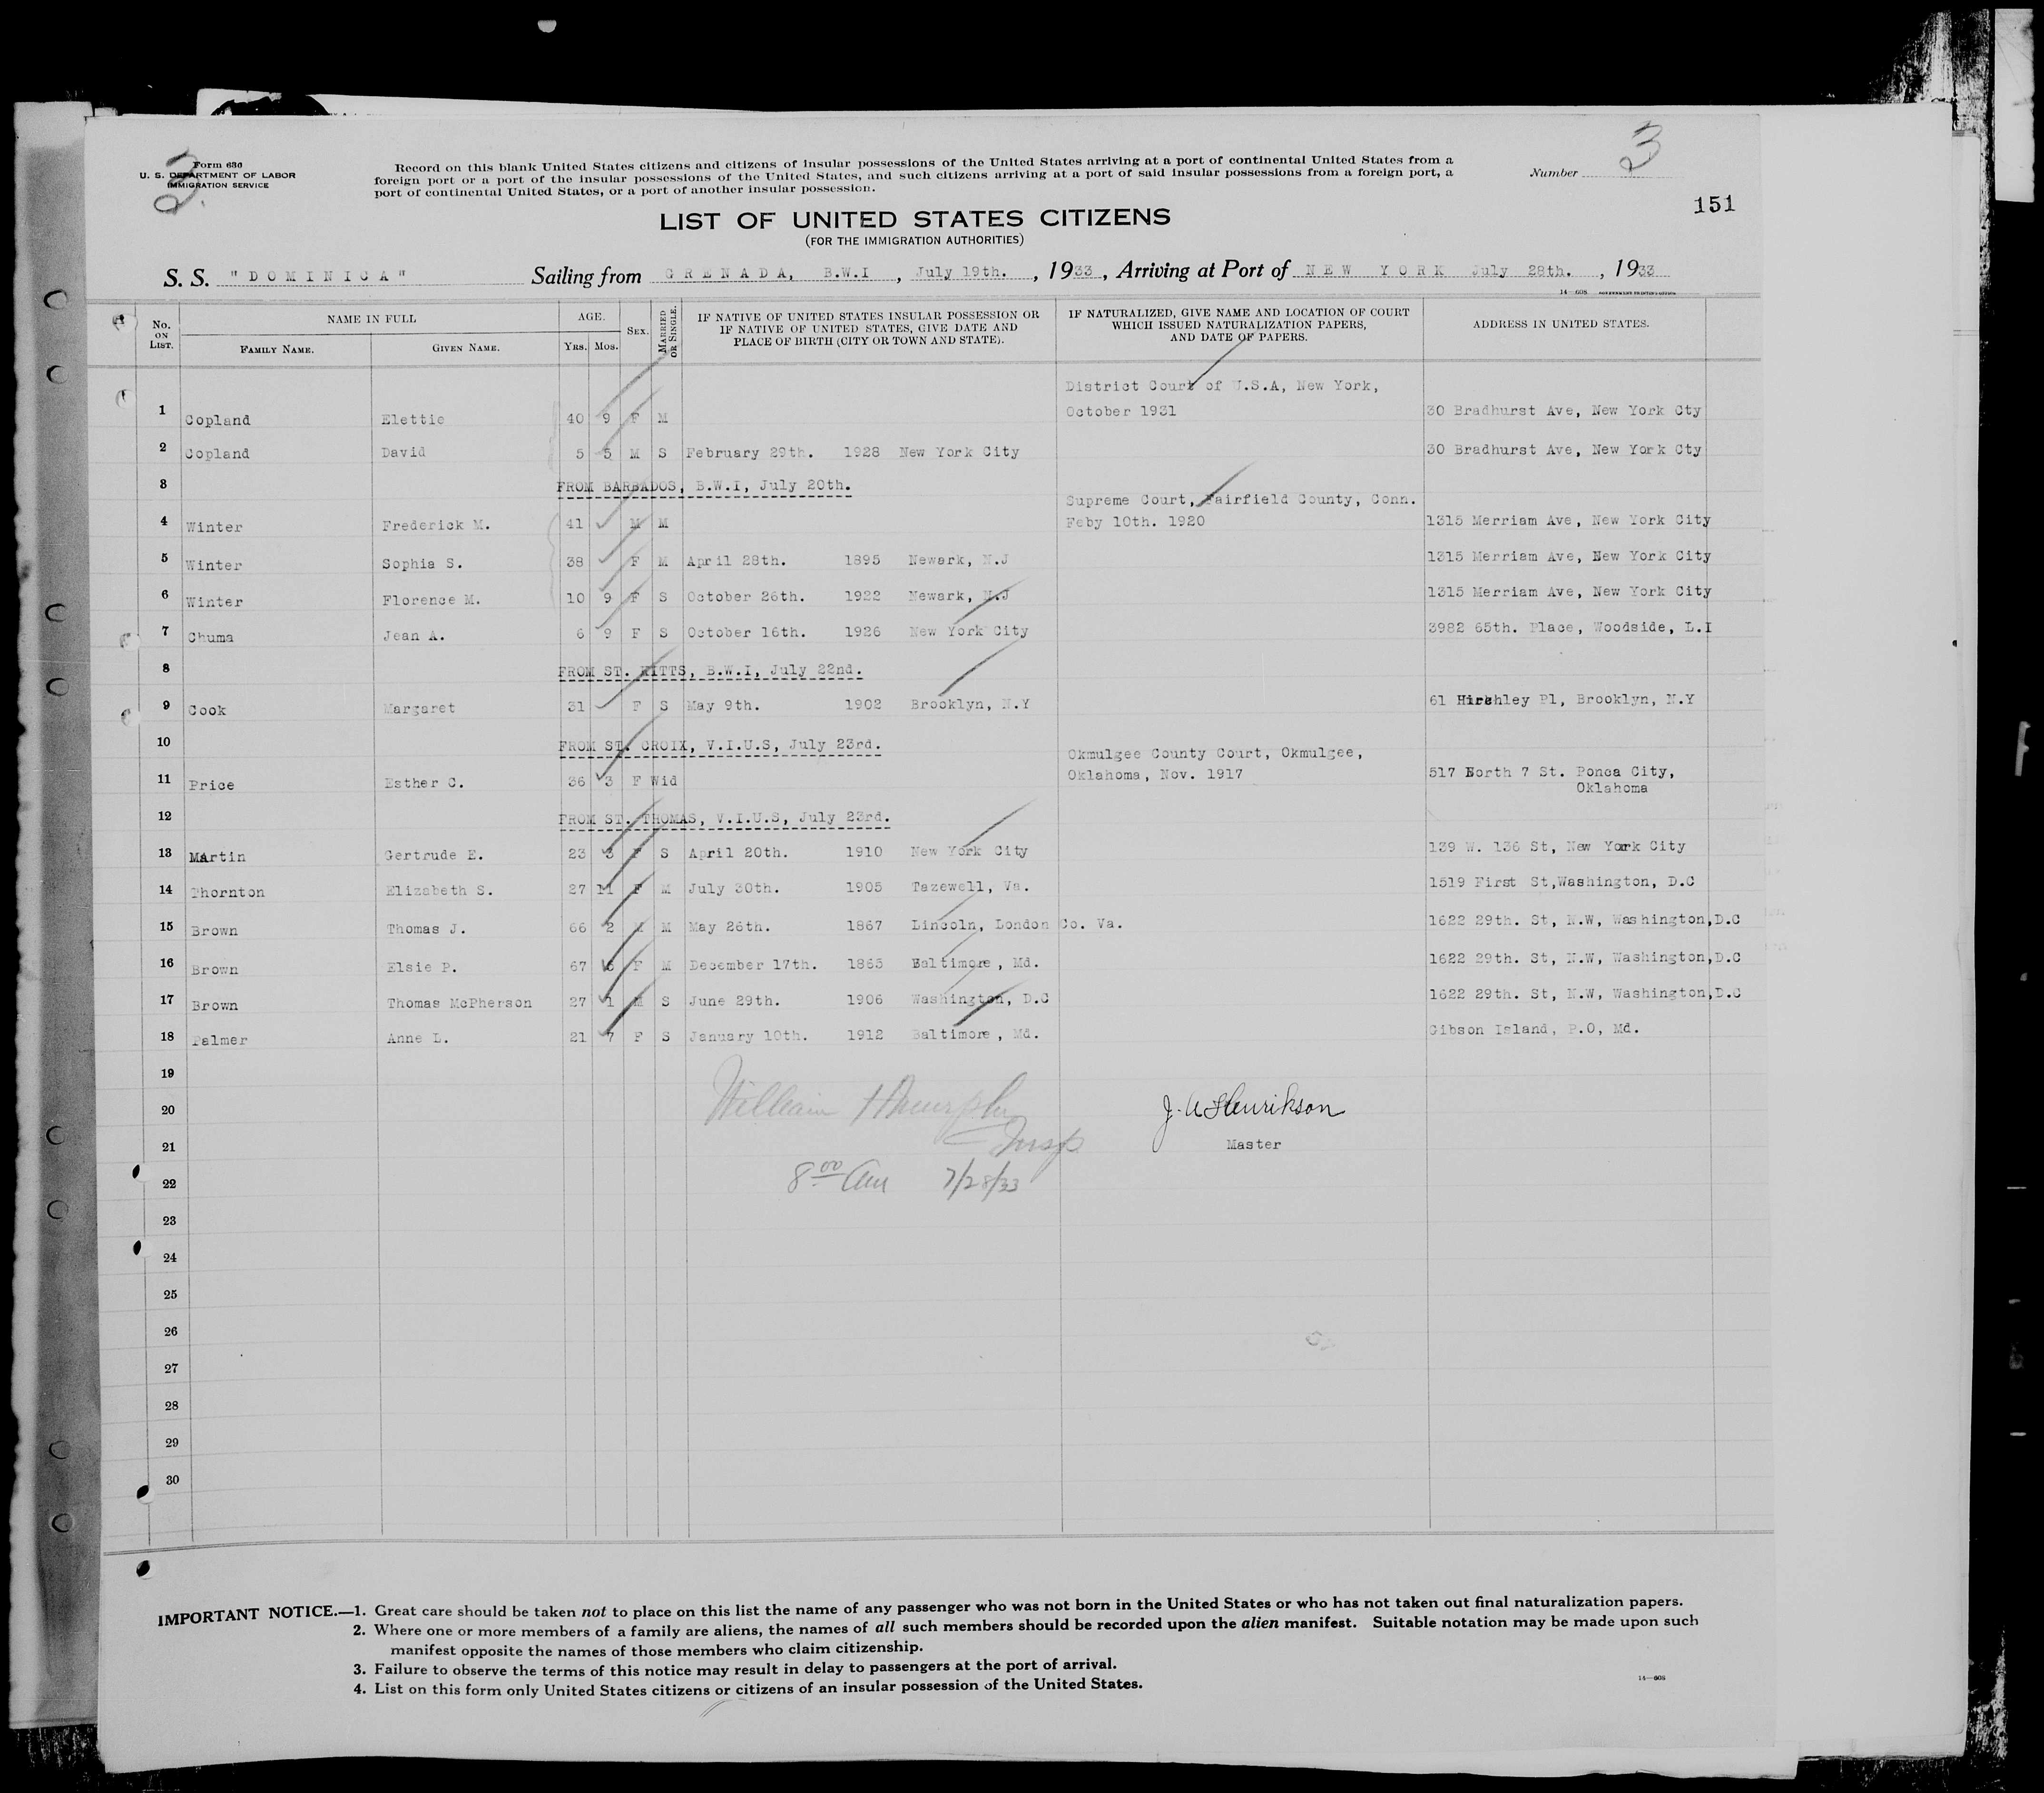 Form 630
U. S. DEPARTMENT OF LABOR
IMMIGRATION SERVICE
3
Record on this blank United States citizens and citizens of insular possessions of the United States arriving at a port of continental United States from a
foreign port or a port of the insular possessions of the United States, and such citizens arriving at a port of said insular possessions from a foreign port, a
port of continental United States, or a port of another insular possession.
Number 3
151
LIST OF UNITED STATES CITIZENS
(FOR THE IMMIGRATION AUTHORITIES)
S. S. "DOMINICA" Sailing from GRENADA, B.W.I, July 19th., 1933, Arriving at Port of NEW YORK July 28th., 1933
14—608 GOVERNMENT PRINTING OFFICE
No. ON LIST. NAME IN FULL FAMILY NAME. GIVEN NAME. AGE. YRS. MOS. SEX. MARRIED OR SINGLE. IF NATIVE OF UNITED STATES INSULAR POSSESSION OR IF NATIVE OF UNITED STATES, GIVE DATE AND PLACE OF BIRTH (CITY OR TOWN AND STATE). IF NATURALIZED, GIVE NAME AND LOCATION OF COURT WHICH ISSUED NATURALIZATION PAPERS, AND DATE OF PAPERS. ADDRESS IN UNITED STATES.
District Court of U.S.A, New York,
1 Copland Elettie 40 9 F M October 1931 30 Bradhurst Ave, New York Cty
2 Copland David 5 5 M S February 29th. 1928 New York City 30 Bradhurst Ave, New York Cty
3 FROM BARBADOS, B.W.I, July 20th.
Supreme Court, Fairfield County, Conn.
4 Winter Frederick M. 41 M M Feby 10th. 1920 1315 Merriam Ave, New York City
5 Winter Sophia S. 38 F M April 28th. 1895 Newark, N.J 1315 Merriam Ave, New York City
6 Winter Florence M. 10 9 F S October 26th. 1922 Newark, N.J 1315 Merriam Ave, New York City
7 Chuma Jean A. 6 9 F S October 16th. 1926 New York City 3982 65th. Place, Woodside, L.I
8 FROM ST. KITTS, B.W.I, July 22nd.
9 Cook Margaret 31 F S May 9th. 1902 Brooklyn, N.Y 61 Pl, Brooklyn, N.Y
10 FROM ST. CROIX, V.I.U.S, July 23rd.
Okmulgee County Court, Okmulgee,
11 Price Esther C. 36 3 F Wid Oklahoma, Nov. 1917 517 North 7 St. Ponca City,
Oklahoma
12 FROM ST. THOMAS, V.I.U.S, July 23rd.
13 Martin Gertrude E. 23 3 F S April 20th. 1910 New York City 139 W. 136 St, New York City
14 Thornton Elizabeth S. 27 11 F M July 30th. 1905 Tazewell, Va. 1519 First St,Washington, D.C
15 Brown Thomas J. 66 2 M M May 26th. 1867 Lincoln, London Co. Va. 1622 29th. St, N.W, Washington,D.C
16 Brown Elsie P. 67 F M December 17th. 1865 Baltimore, Md. 1622 29th. St, N.W, Washington,D.C
17 Brown Thomas McPherson 27 1 M S June 29th. 1906 Washington, D.C 1622 29th. St, N.W, Washington,D.C
18 Palmer Anne L. 21 7 F S January 10th. 1912 Baltimore, Md. Gibson Island, P.O, Md.
19
20 William H Murphy J. A Henrikson
21 Insp Master
22 8 00 am 7/28/33
23
24
25
26
27
28
29
30
IMPORTANT NOTICE.—1. Great care should be taken not to place on this list the name of any passenger who was not born in the United States or who has not taken out final naturalization papers.
2. Where one or more members of a family are aliens, the names of all such members should be recorded upon the alien manifest. Suitable notation may be made upon such
manifest opposite the names of those members who claim citizenship.
3. Failure to observe the terms of this notice may result in delay to passengers at the port of arrival.
4. List on this form only United States citizens or citizens of an insular possession of the United States.
14—608